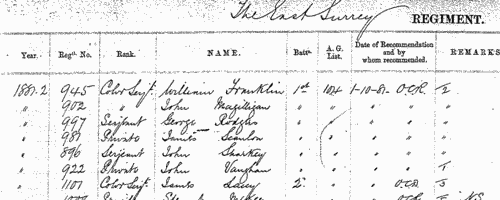 The East Surrey REGIMENT.
Year. Regtl. No. Rank. NAME. Battn. A. G. List. Date of Recommendation and by whom recommended. REMARKS
1881-2 945 Color Serjt. William Franklin 1st 104 1-10-81- O.C.R.
" 902 " John Magilligan " " " "
" 997 Serjeant George Rodgers " " " "
" 987 Private James Scanlon " " "
" 896 Serjeant John Sharkey " " " "
" 922 Private John Vaughan " " " "
" 1101 Color Serjt. James Lacey 2. " " O.C.R.